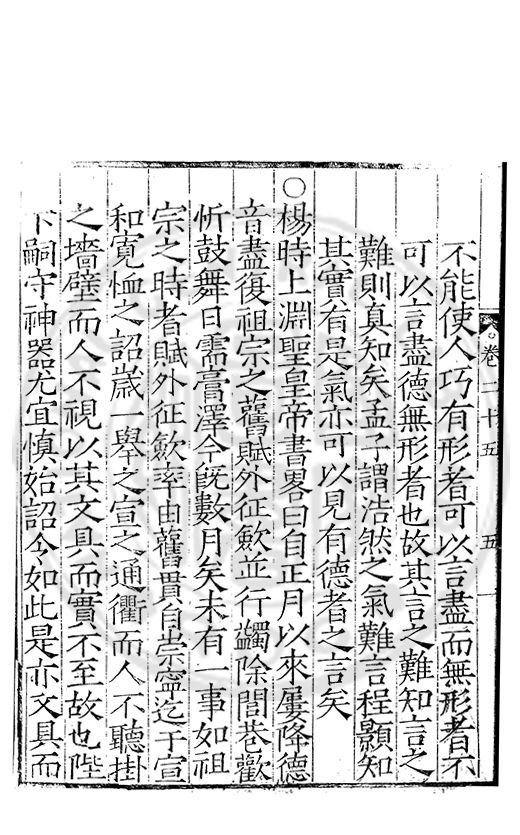 卷二十五 五
不能使人巧有形者可以言盡而無形者不
可以言盡德無形者也故其言之難知言之
難則真知矣孟子謂浩然之氣難言程顥知
其實有是氣亦可以見有德者之言矣
○楊時上淵聖皇帝書畧曰自正月以來屢降德
音盡復祖宗之舊賦外征歛並行蠲除閭巷歡
忻鼓舞日需膏澤今旣數月矣未有一事如祖
宗之時者賦外征歛率由舊貫自崇寧迄于宣
和寛恤之詔歲一舉之宣之通衢而人不聽掛
之墻壁而人不視以其文具而實不至故也陛
下嗣守神器尤宜慎始詔令如此是亦文具而